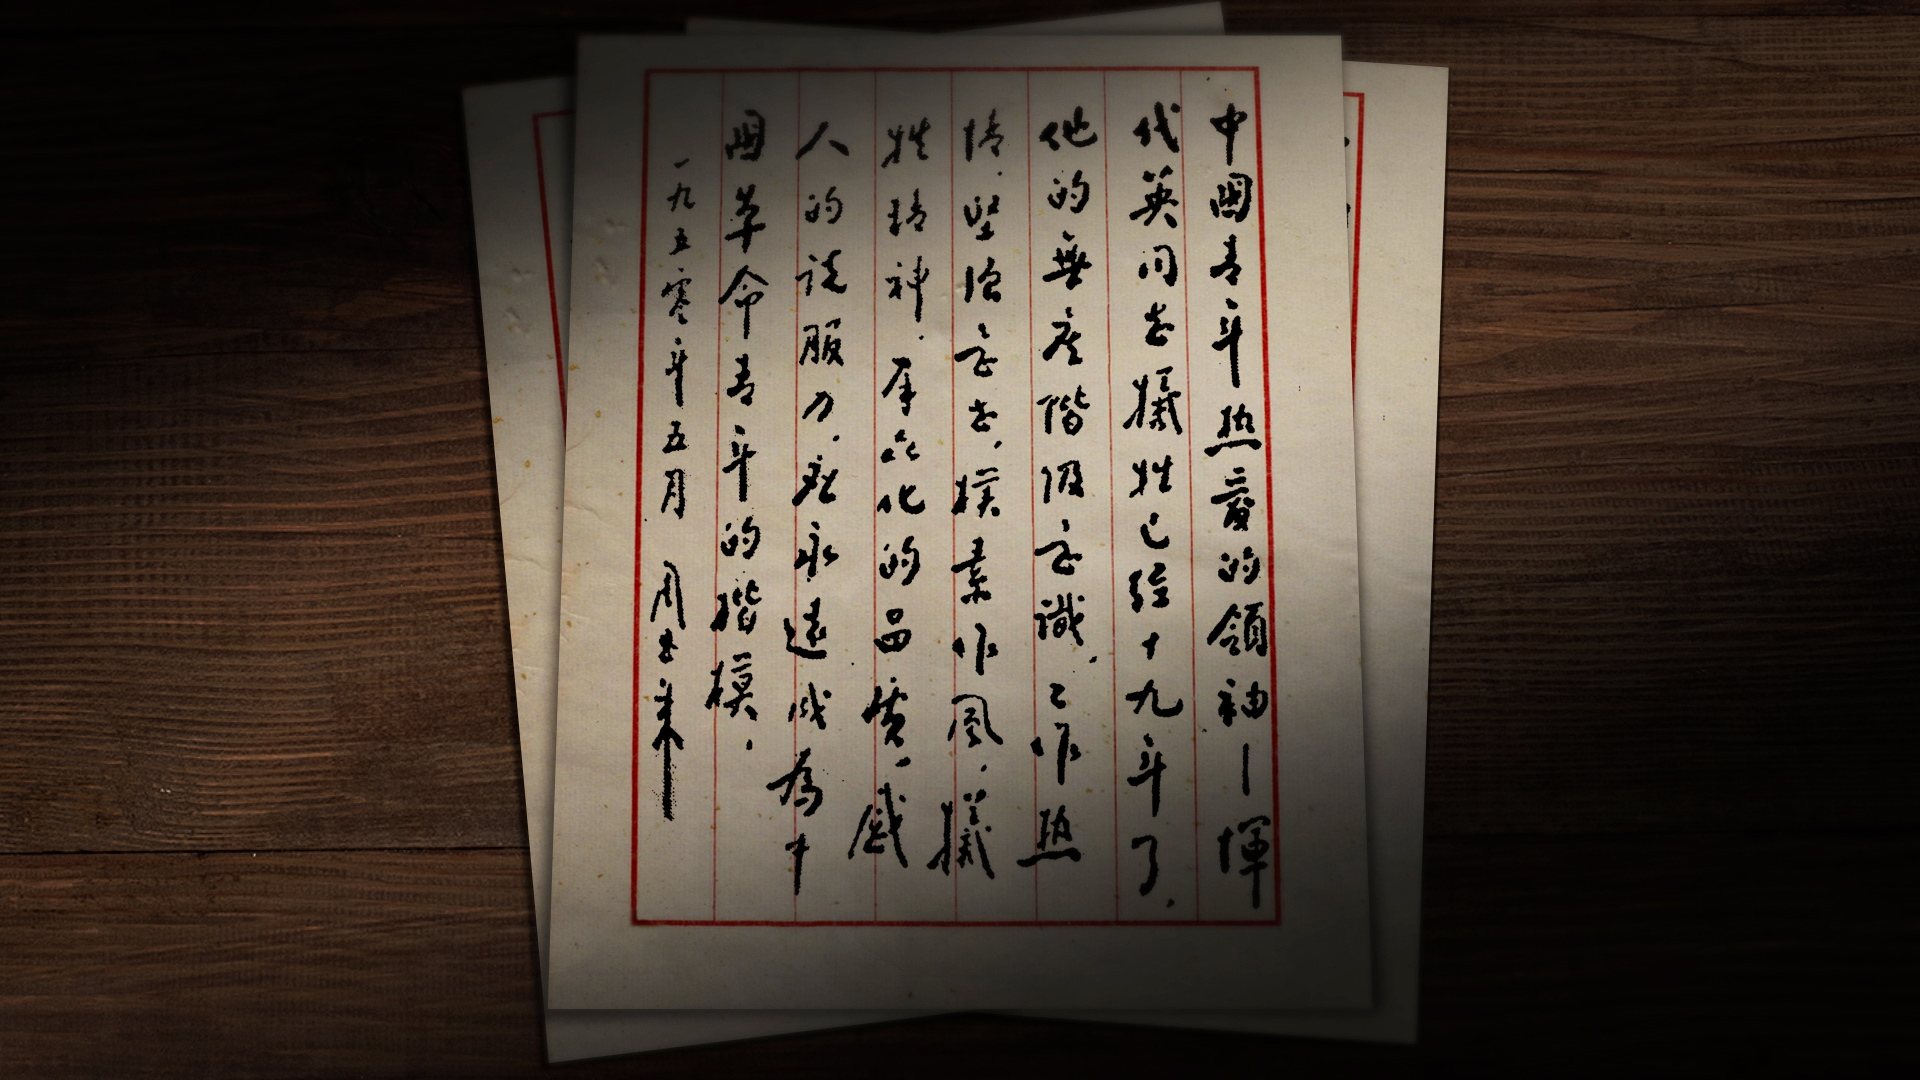 中國青年热愛的領袖—惲
代英同志犧牲已經十九年了，
他的無産階级意識，工作热
情，堅强意志，樸素作風，犧
牲精神，羣众化的品質，感
人的説服力，应永遠成為中
國革命青年的楷模。
一九五零年五月 周恩来